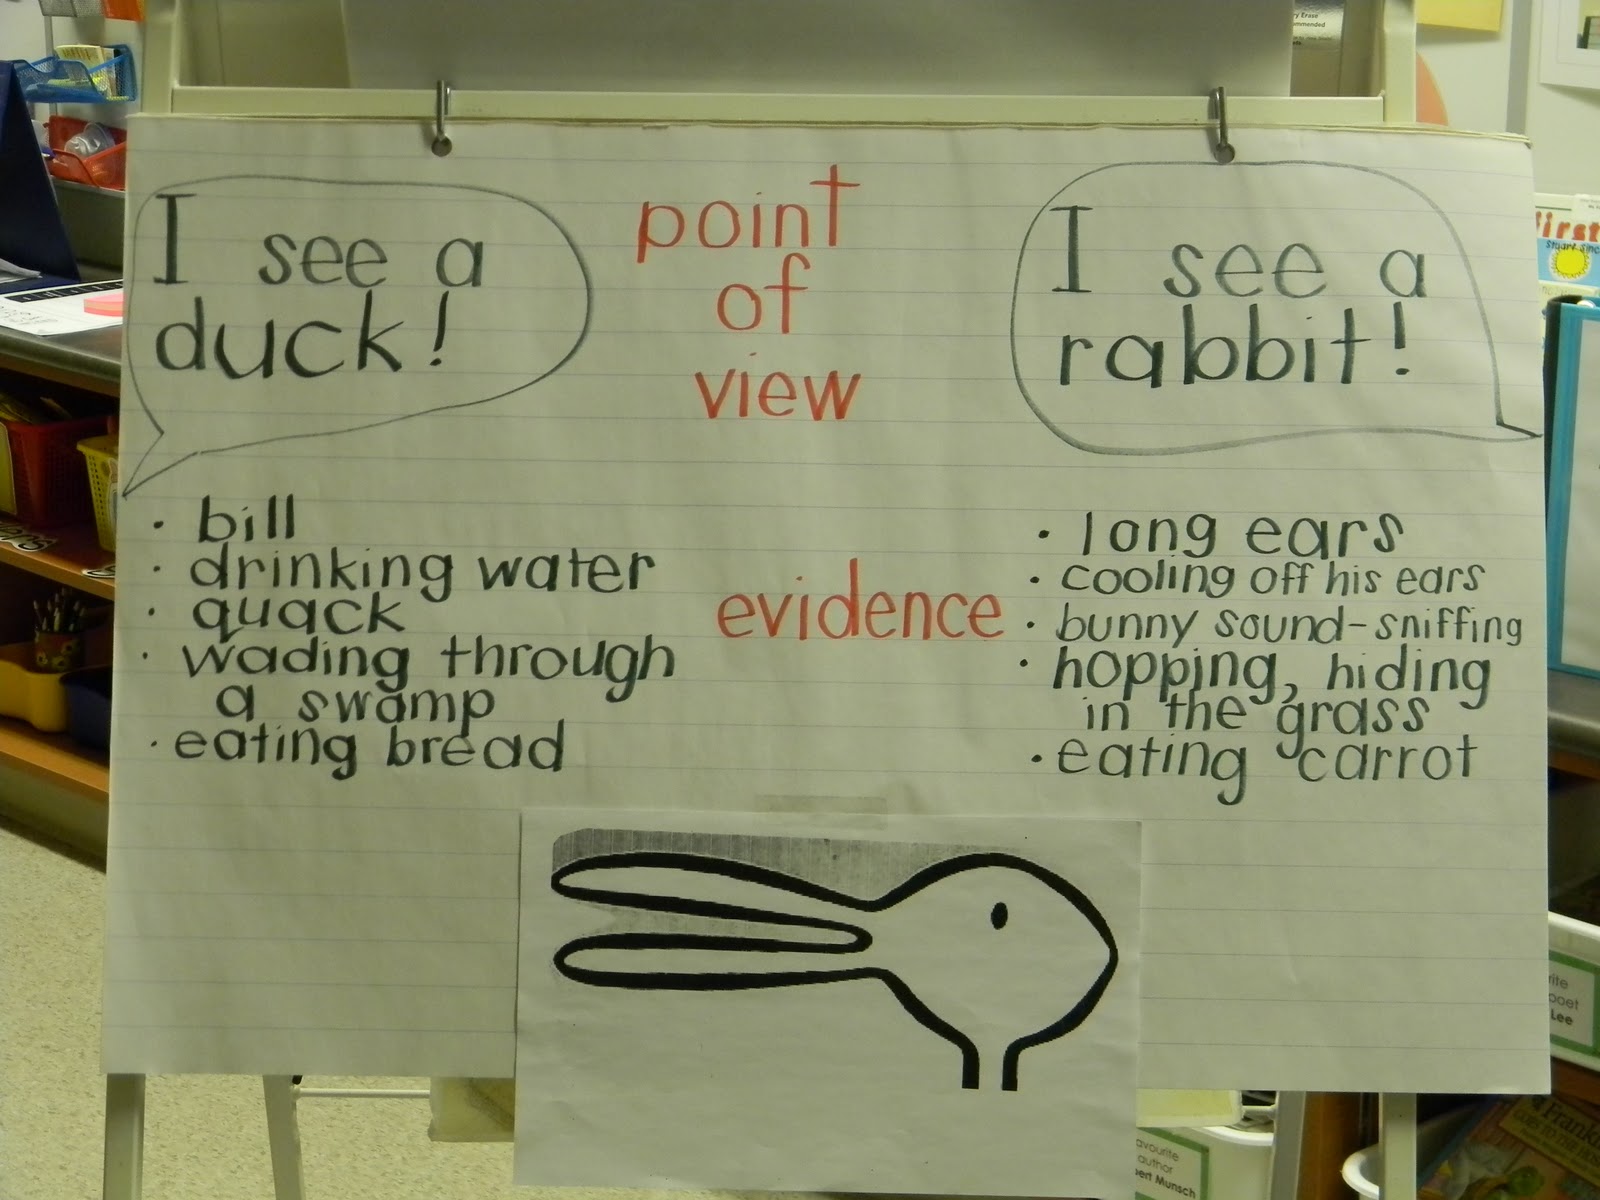 I see a
duck!
point
of
view
I see a
rabbit!
• bill
• drinking water
• quack
• wading through
a swamp
• eating bread
evidence
• long ears
• cooling off his ears
• bunny sound-sniffing
• hopping, hiding
in the grass
• eating carrot
first
Stuart
poet
Lee
author
Munsch